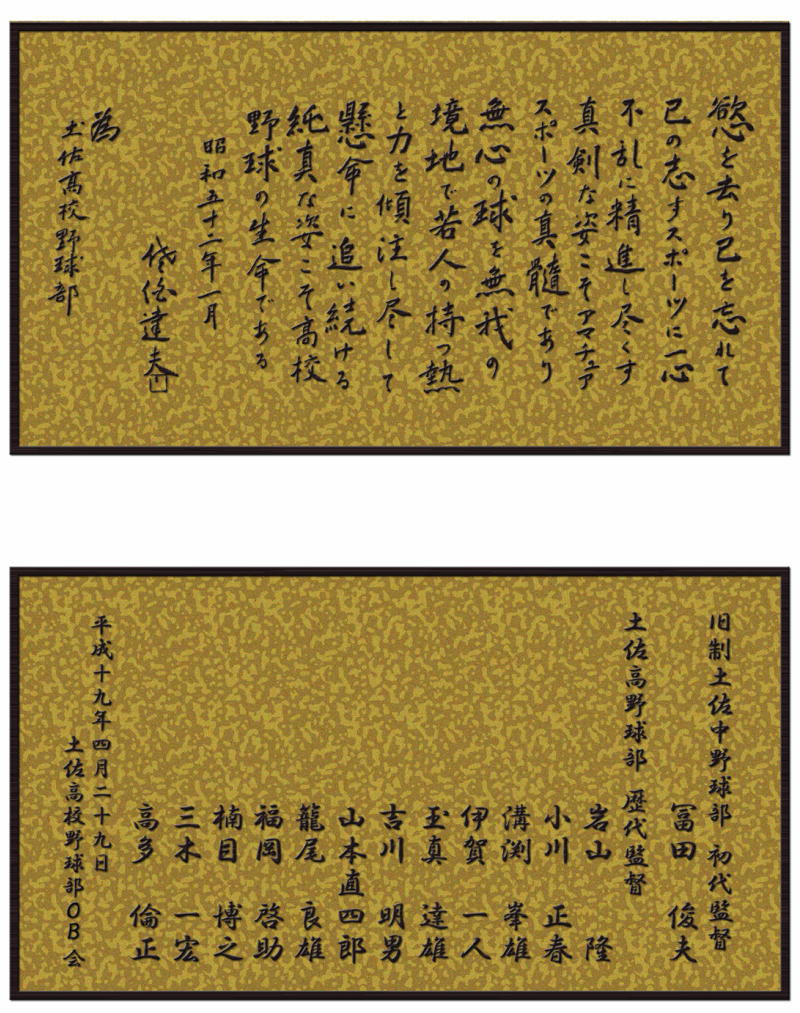 慾を去り己を忘れて
己の志すスポーツに一心
不乱に精進し尽くす
真剣な姿こそアマチュア
スポーツの真髄であり
無心の球を無我の
境地で若人の持つ熱
と力を傾注し尽して
懸命に追い続ける
純真な姿こそ高校
野球の生命である
昭和五十二年一月
達夫
為
土佐高校野球部
旧制土佐中野球部 初代監督
冨田 俊夫
土佐高野球部 歴代監督
岩山 隆
小川 正春
溝渕 峯雄
伊賀 一人
玉真 達雄
吉川 明男
山本直四郎
籠尾 良雄
福岡 啓助
楠目 博之
三木 一宏
高多 倫正
平成十九年四月二十九日
土佐高校野球部OB会